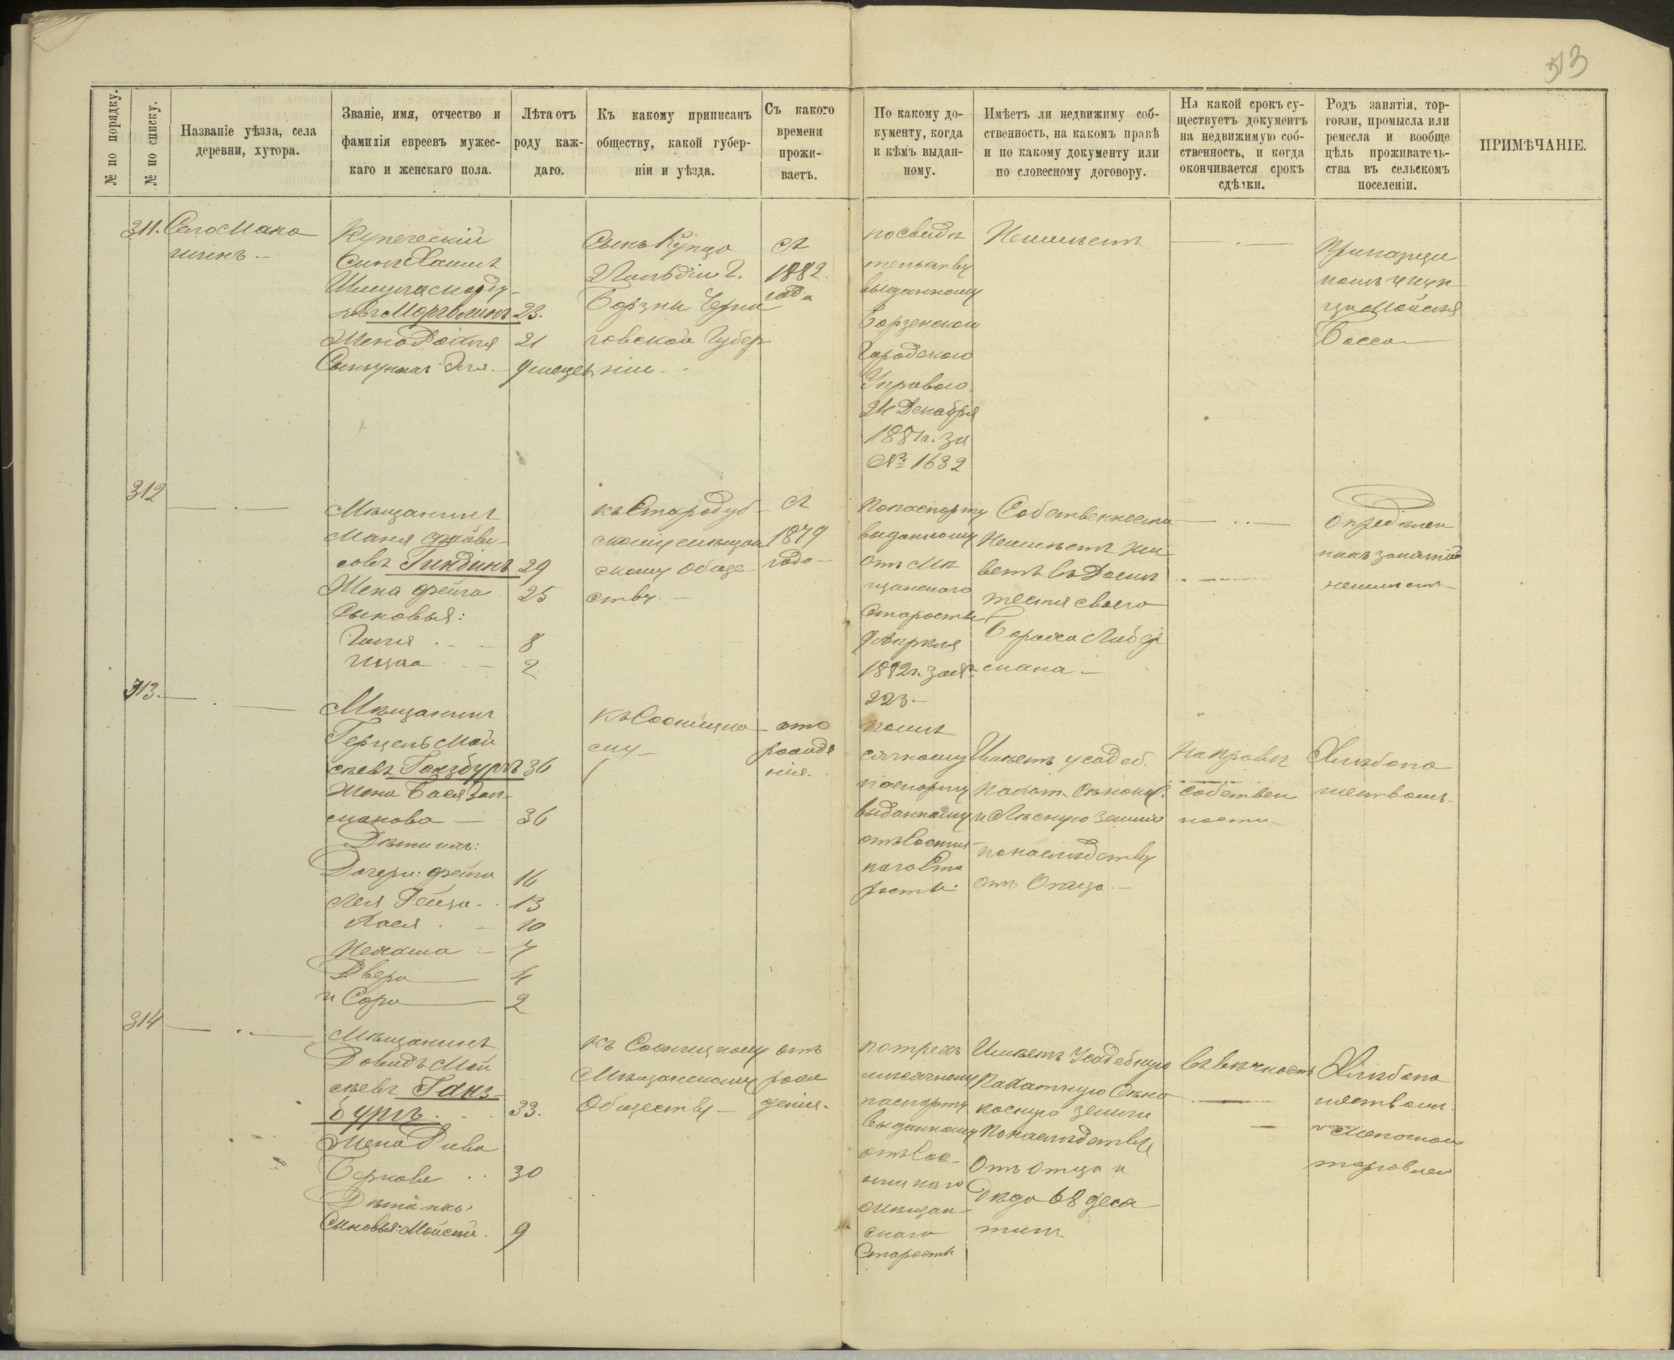 313
№ по порядку.
№ по списку.
Названіе уѣзда, села
деревни, хутора.
Званіе, имя, отчество и
фамилія евреевъ мужес-
каго и женскаго пола.
Лѣта отъ
роду каж-
даго.
Къ какому приписанъ
обществу, какой губер-
ніи и уѣзда.
Съ какого
времени
прожи-
ваетъ.
По какому до-
кументу, когда
и кѣмъ выдан-
ному.
Имѣетъ ли недвижиму соб-
ственность, на какомъ правѣ
и по какому документу или
по словесному договору.
На какой срокъ су-
ществуетъ документъ
на недвижимую соб-
ственность, и когда
окончивается срокъ
сдѣлки.
Родъ занятія, тор-
говли, промысла или
ремесла и вообще
цѣль проживатель-
ства въ сельскомъ
поселеніи.
ПРИМѢЧАНІЕ.
311.
Село Мако
шинъ
Купеческій
Сынъ
Марголинъ 23.
Жена 21
Сынъ
Сынъ Купца
2 Гильдіи Г.
Борзны Черни
говской Губер
ніи
Съ
1882
года
по свидѣ
тельству
выданному
Борзенской
Городского
Управого
21 Декабря
1881 г. за
№ 1632
Неимѣетъ
Мойсея
Басса
312
Мѣщанинъ
совъ Гиндинъ 29
Жена Фейга 25
Сыновья:
8
Ицка 2
къ Стародуб
скому мѣщан
скому Обще
ству.
Съ
1879
года
Попаспорту
выданному
отъ Мѣ
щанского
Старосты
9 Апрѣля
1882 г. за №
223
Собственности
Неимѣетъ жи
ветъ въ Домѣ
тестя своего
Либер
мана
Опредѣлен
ныхъ занятій
неимѣетъ
313.
Мѣщанинъ
Герцель Мой
сѣевъ Гинзбургъ 36
Жена Бася Зал
манова 36
Дѣти ихъ:
Дочери: Фейга 16
Лея 13
Хася 10
Нехама 7
Двера 4
и Сора 2
къ Сосницко
му
отъ
рожде
нія.
помѣ
сячному
паспорту
выданному
отъ Сосниц
каго Ста
росты
Имѣетъ усадеб.
Пахат. Сѣнокос.
и Лѣсную Землю
по наслѣдству
отъ Отца.
На правѣ
собствен
ности
Хлѣбопа
шествомъ.
314
Мѣщанинъ
Довидъ Мой
сѣевъ Гинз-
бургъ 33.
Жена Рива
Беркова 30
Дѣти ихъ
Сыновья: Мойсей 9
къ Сосницкому
Мѣщанскому
Обществу
отъ
рож
денія.
по трехъ
мѣсячному
паспорту
выданному
отъ Сос
ницкаго
мѣщан
скаго
Старосты
Имѣетъ Усадебную
Пахатную Сѣно
косную землю
По наслѣдству
Отъ Отца и
Дѣда 68 деся
тинъ
въ вѣчность
Хлѣбопа
шествомъ
и мелочной
торговлей